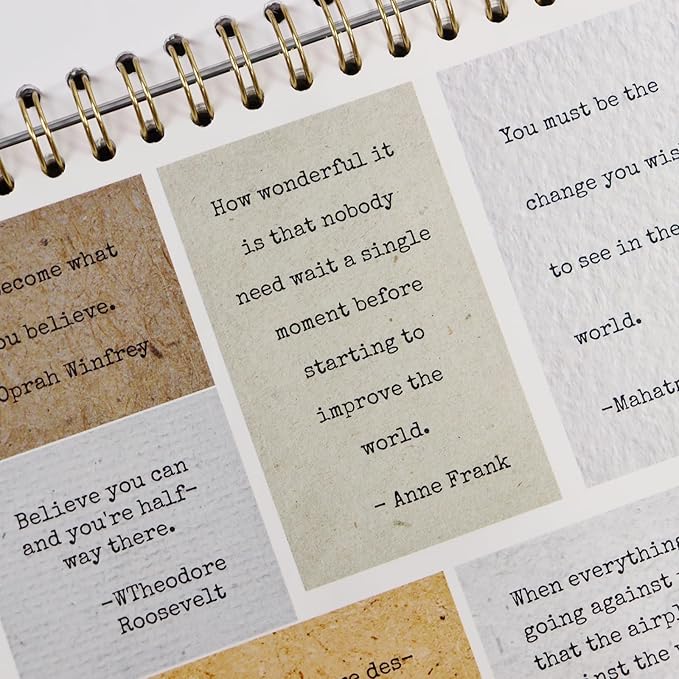 ecome what
ou believe.
Oprah Winfrey
Believe you can
and you're half-
way there.
-WTheodore
Roosevelt
How wonderful it
is that nobody
need wait a single
moment before
starting to
improve the
world.
- Anne Frank
You must be the
change you wis
to see in the
world.
-Mahat
When everything
going against
that the airpl
inst the
re des-